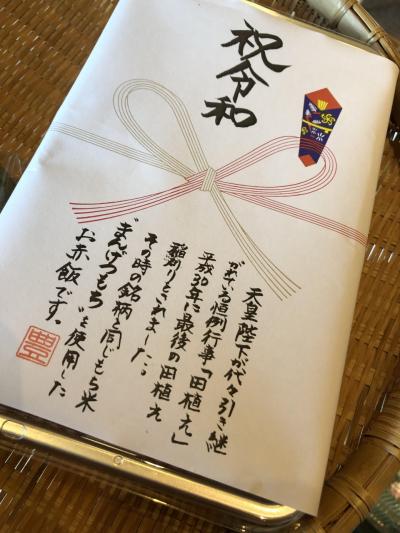 祝令和
天皇陛下が代々引き継
がれている恒例行事「田植え」
平成30年に最後の田植え
稲刈りとされました。
その時の銘柄と同じもち米
"まんげつもち"を使用した
お赤飯です。
豊